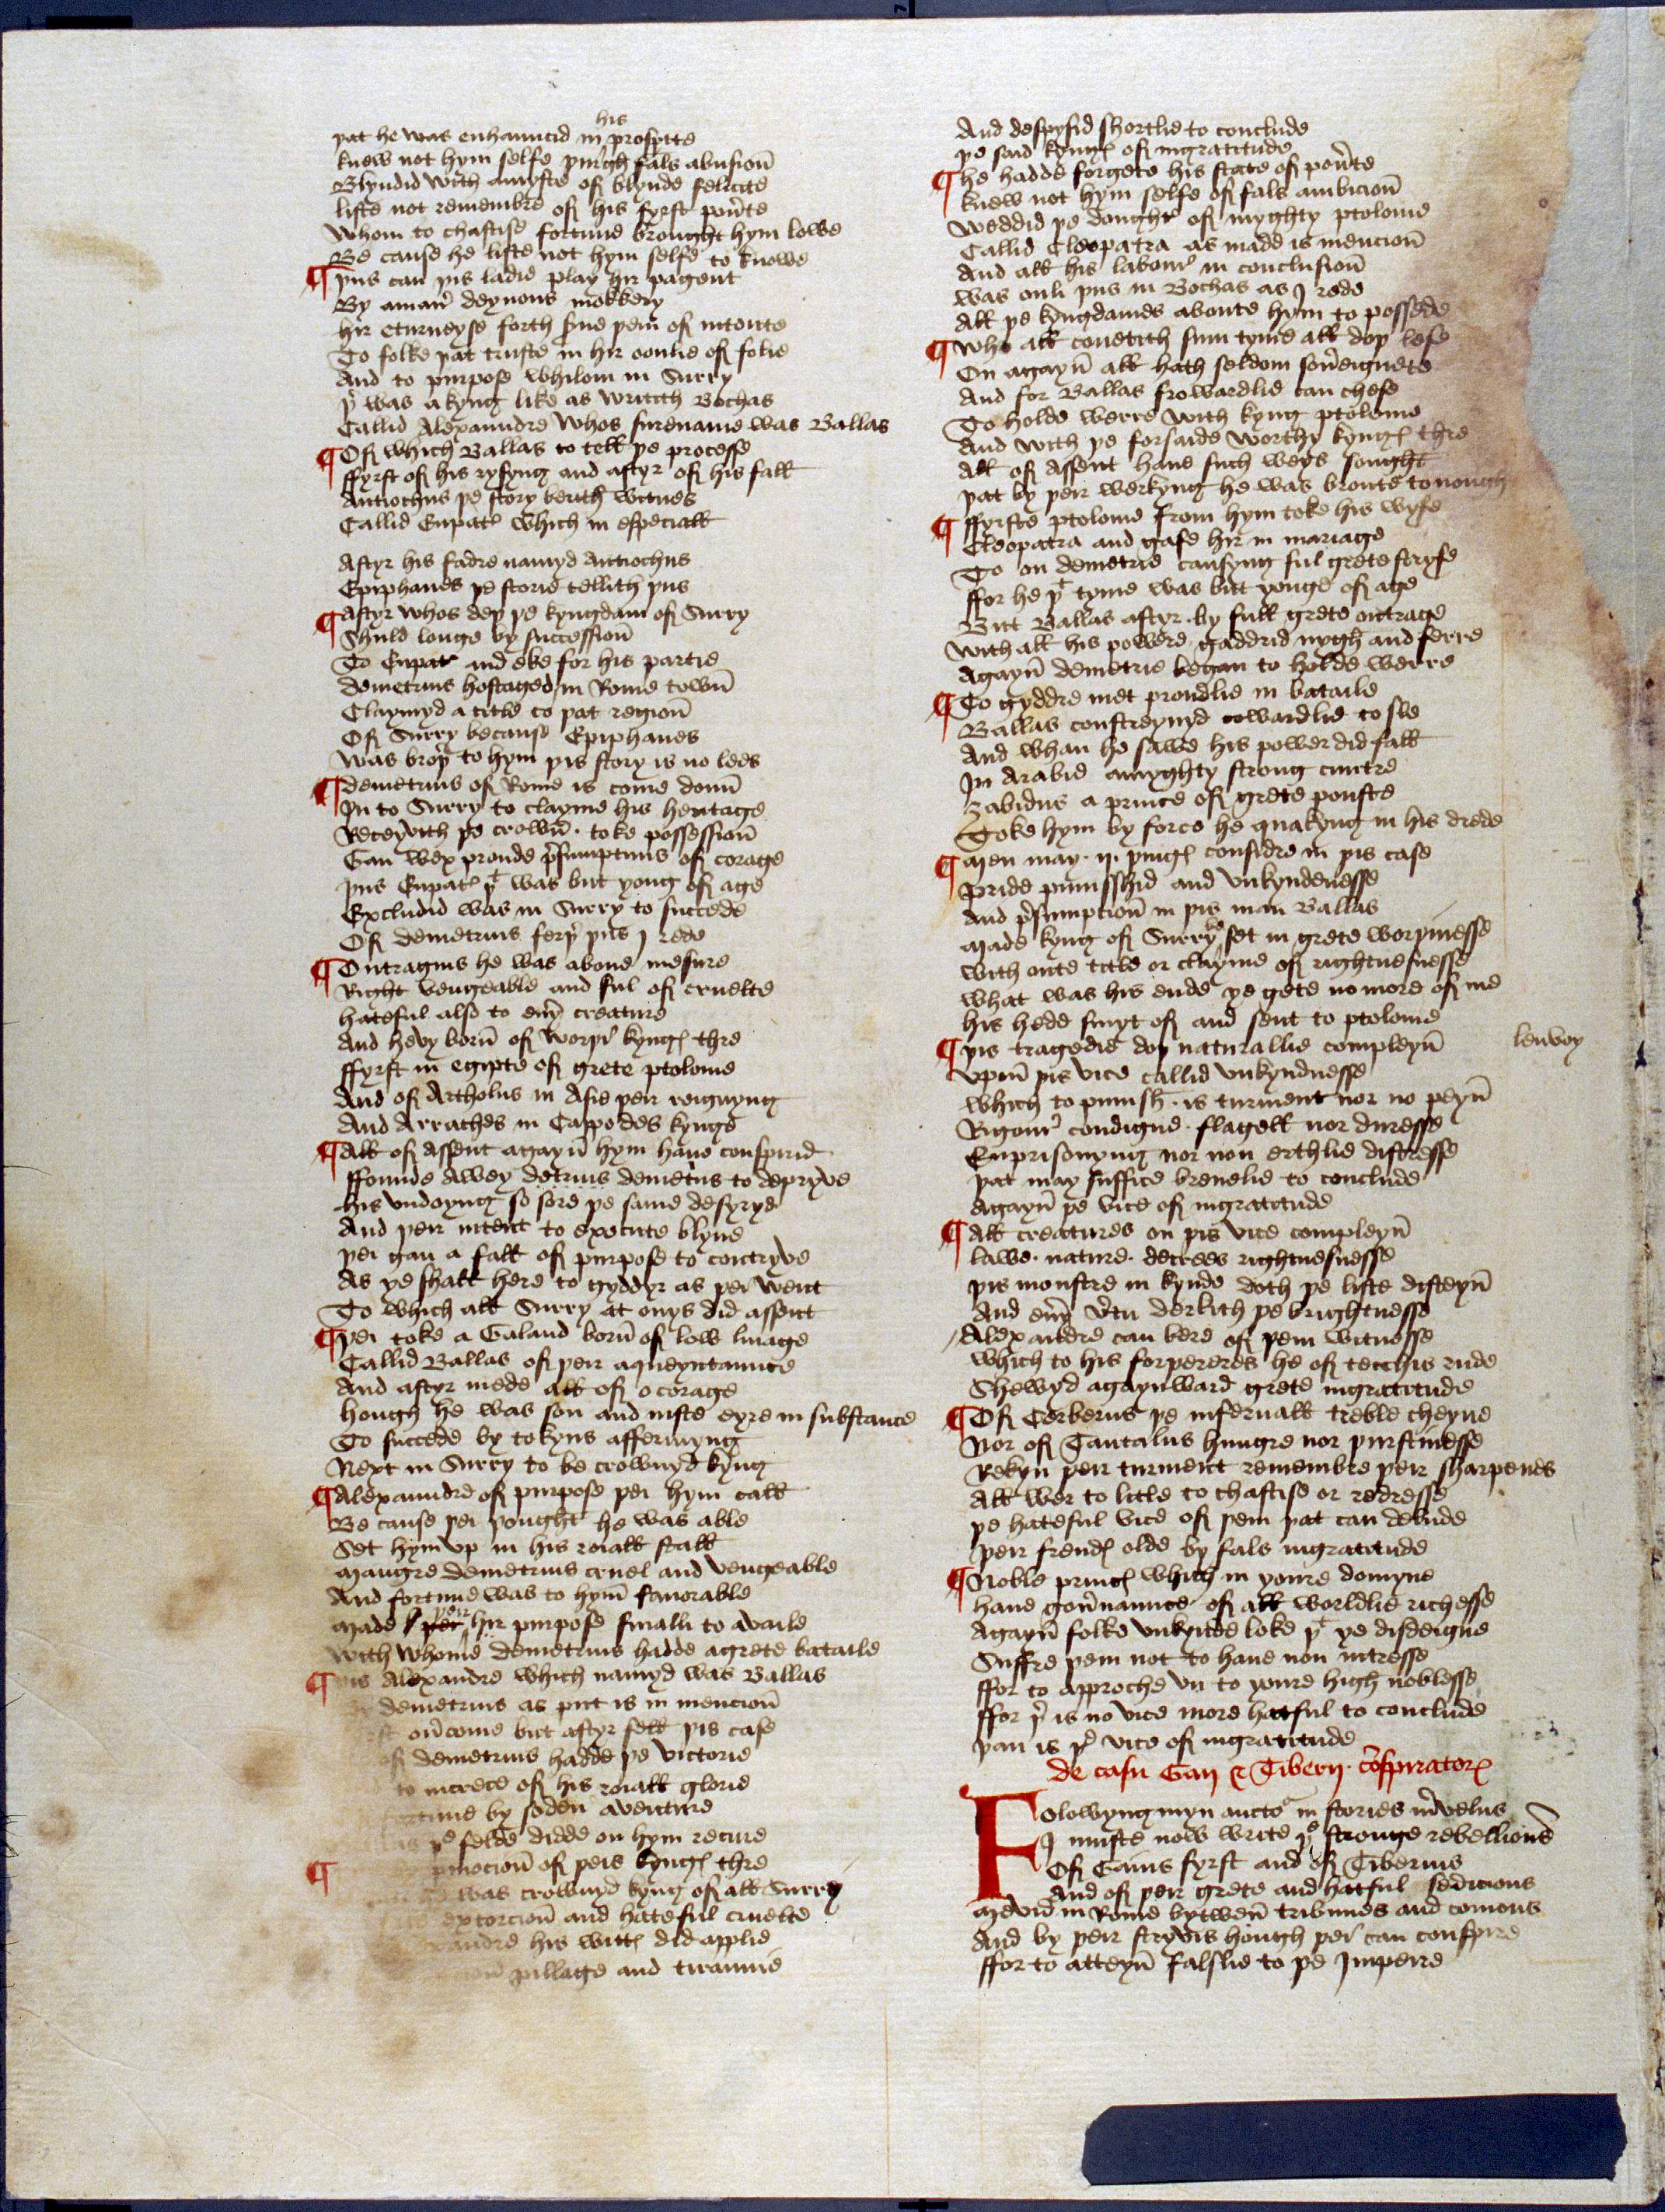 his
þat he was enhauncid in prosp̱ite
knew not hym selfe þurgh fals abusioū
Blyndid with amyste off blynde felicite
liste not remembre off his fyrst pou̕te
Whom to chastise fortune brought hym lowe
Be cause he liste not hym selfe to knowe
¶ þus can þis ladie play hir pagent
By aman̕ deynous mokkery
hir eturneyse forth sine þem off intente
To folke þat truste in hir oonlie off folie
And to purpose whilom in Surry
þ̕ was akyng like as writith Bochas
Callid Alexaundre whos surename was Ballas
¶ Off which Ballas to tell þe processe
ffyrst off his rysyng and aftyr off his fall
Antiochus þe story berith witnes
Callid Eupat̕ which in especiall
Aftyr his fadre namyd Antiochus
Epiphanes þe storie tellith þus
¶ aftyr whos deþ þe kyngdam off Surry
Shuld longe by successioū
To Eupat̕ and eke for his partie
demetrius hostaged in Rome towū
Claymyd a title to þat regioū
Off Surry because Epiphanes
was broþ̕ to hym þis story is no lees
¶ demetrius off Rome is come douū
In to Surry to clayme his heritage
Receyvith þe crowū · toke possessioū
Gan wex proude p̕sumptuus off corage
þus Eupat̕ þᵗ was but yong off age
Excludid was in Surry to succede
Off demetrius ferþ̕ þus I rede
¶ Outragius he was aboue mesure
Right vengeable and ful off cruelte
hateful also to eu̕y creature
And hevy borū off worþi kyngꝭ thre
ffyrst in egipte off grete ptolome
And off Artholus in Asie þeir reignyng
And Arrathes in Cappodes kynge
¶ All off assent agayū hym haue conspirid
ffounde Awey detrius demet̕us to depryve
his vndoyng so sore þe same desyryd
And þeir intent to execute blyue
þei gan a fall off purpose to contryve
As ye shall here to gyddyr as þei went
To which all Surry at onys did assent
¶ þei toke a Galand borū off low linage
Callid Ballas off þeir aqueyntaunce
And aftyr mede all off o corage
hough he was son and niste eyre in substance
To succede by tokyns affermyng
Next in Surry to be crownyd kyng
¶ Alexaundre off purpose þei hym call
Be cause þei þought he was able
Set hym vp in his roiall stall
maugre demetrius cruel and vengeable
And fortune was to hym̄ fauorable
made þer þeir hir purpose finalli to availe
with whome demetrius hadde agrete bataile
¶ þis Alexandre which namyd was Ballas
demetrius as put is in mencioū
ou̕come but aftyr fell þis case
off demetrius hadde þe victorie
to increce off his roiall glorie
fortune by soden aventure
þe felde didde on hym recure
¶ pmocioū off þeis kyngꝭ thre
was crownyd kyng off all Surry
extorcioū and hateful cruelte
his wittꝭ did applie
pillage and tirannie
And despysid shortlie to conclude
þe said kyngꝭ off ingratitude
¶ he hadde forgete his state off pou̕te
knew not hym selfe off fals ambicioū
weddid þe doughtᵉ off myghty ptolome
Callid Cleopatra as made is mencioū
And all his labour̕ in conclusioū
was onli þus in Bochas as I rede
All þe kyngdames aboute hym to possede
¶ Who all coueitith sum tyme all doþ lese
On agayū all hath seldom sou̕eignete
And for Ballas frowardlie can chese
To holde werre with kyng ptolome
And with þe forsaide worthy kyngꝭ thre
All off assent haue such weys sought
þat by þeir werkyng he was broute to nough
¶ ffyrste ptolome from hym toke his wyfe
Cleopatra and gafe hir in mariage
To on demetrie causyng ful grete stryfe
ffor he þᵗ tyme was bitt yonge off age
Bitt Ballas aftyr by full grete outrage
with all his powere gaddrid nygh and ferre
Agayū demetrie began to holde werre
¶ To gyddre met proudlie in bataile
Ballas constreynyd cowardlie to fle
And whan he sawe his power did fall
In Arabie amyghty strong cuntre
Zabidus a prince off grete pouste
Toke hym by force he quakyng in his drede
¶ men may · ii · þingꝭ considre in þis case
pride punisshid and vnkyndenesse
And p̕sumptioū in þis man Ballas
made kyng off Surry be set in grete worþinesse
with oute title or clayme off rightuesnesse
what was his ende ye gete no more off me
his hede smyt off and sent to ptolome
¶ þis tragedie doþ naturallie compleyū
lenvoy
vpoū þis vice callid vnkyndnesse
which to punish · is turment nor no peyū
Rigour̕ condigne · flagell nor duresse
Enprisonyng nor non erthlie distresse
þat may suffice breuelie to conclude
agayū þe vice off ingratitude
¶ All creatures on þis vice compleyū
lawe · nature · decrees rightuesnesse
þis monstre in kynde doth þe liste disteyū
And eu̕y v̕tu derkith þe brightnesse
Alexandre can bere off þem witnesse
which to his forþereres he off tecchis rude
Shewyd agaynward grete ingratitude
¶ Off Cerberus þe infernall treble cheyne
Nor off Tantalus hungre nor þurstinesse
Rekyn þeir turment remembre þeir sharpenes
All wer to litle to chastise or redresse
þe hateful vice off þem þat can delude
þeir frendꝭ olde by fals ingratitude
¶ Noble princꝭ which in youre domyne
haue gou̕naunce off all worldlie richesse
Agayū folke vnkyde loke þᵗ ye disdeigne
Suffre þem not to haue non intresse
ffor to approche vn to youre high noblesse
ffor þ̕ is no vice more hatful to conclude
þan is þᵉ vice off ingratitude
de casu Gaii & Tiberii · co̕spiratorꝭ
Folowyng myn aucto͛ in stories m̕velus
I muste now write þᵉ stronge rebellions
Off Gaius fyrst and off Tiberius
And off þeir grete and hatful sedicions
mevid in Rome bytweū tribunes and comons
And by þeir stryvis hough þei can conspire
ffor to atteyū falslie to þe Impeire